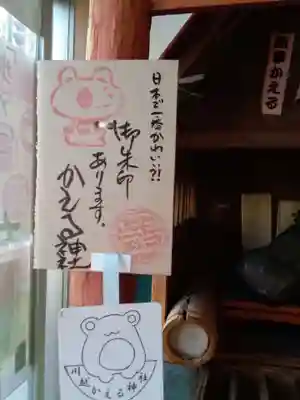 日本で一番かわいい?!
御朱印
あります。
かえる神社
川越かえる神社